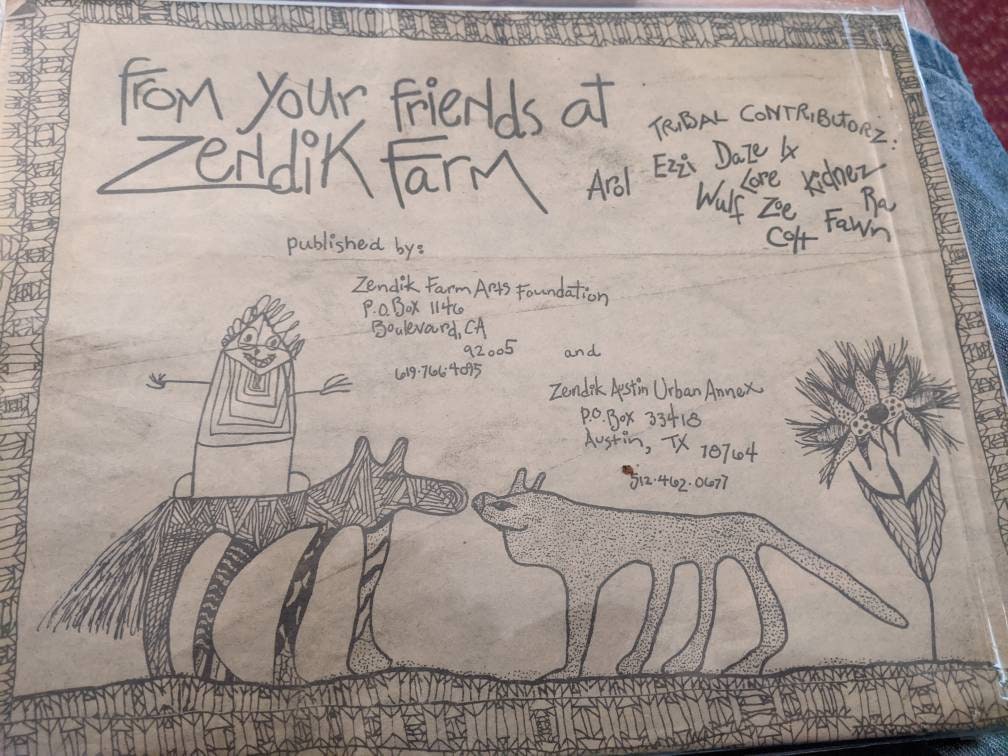 From your friends at
Zendik Farm
TRIBAL CONTRIBUTORZ:
Arol Ezzi Daze Ix
Lore Kidnez
Wulf Zoe Ra
Colt Fawn
published by:
Zendik Farm Arts Foundation
P.O. Box 1146
Boulevard, CA
92005
619.766.4095
and
Zendik Austin Urban Annex
P.O. Box 33418
Austin, TX 78764
512.462.0677